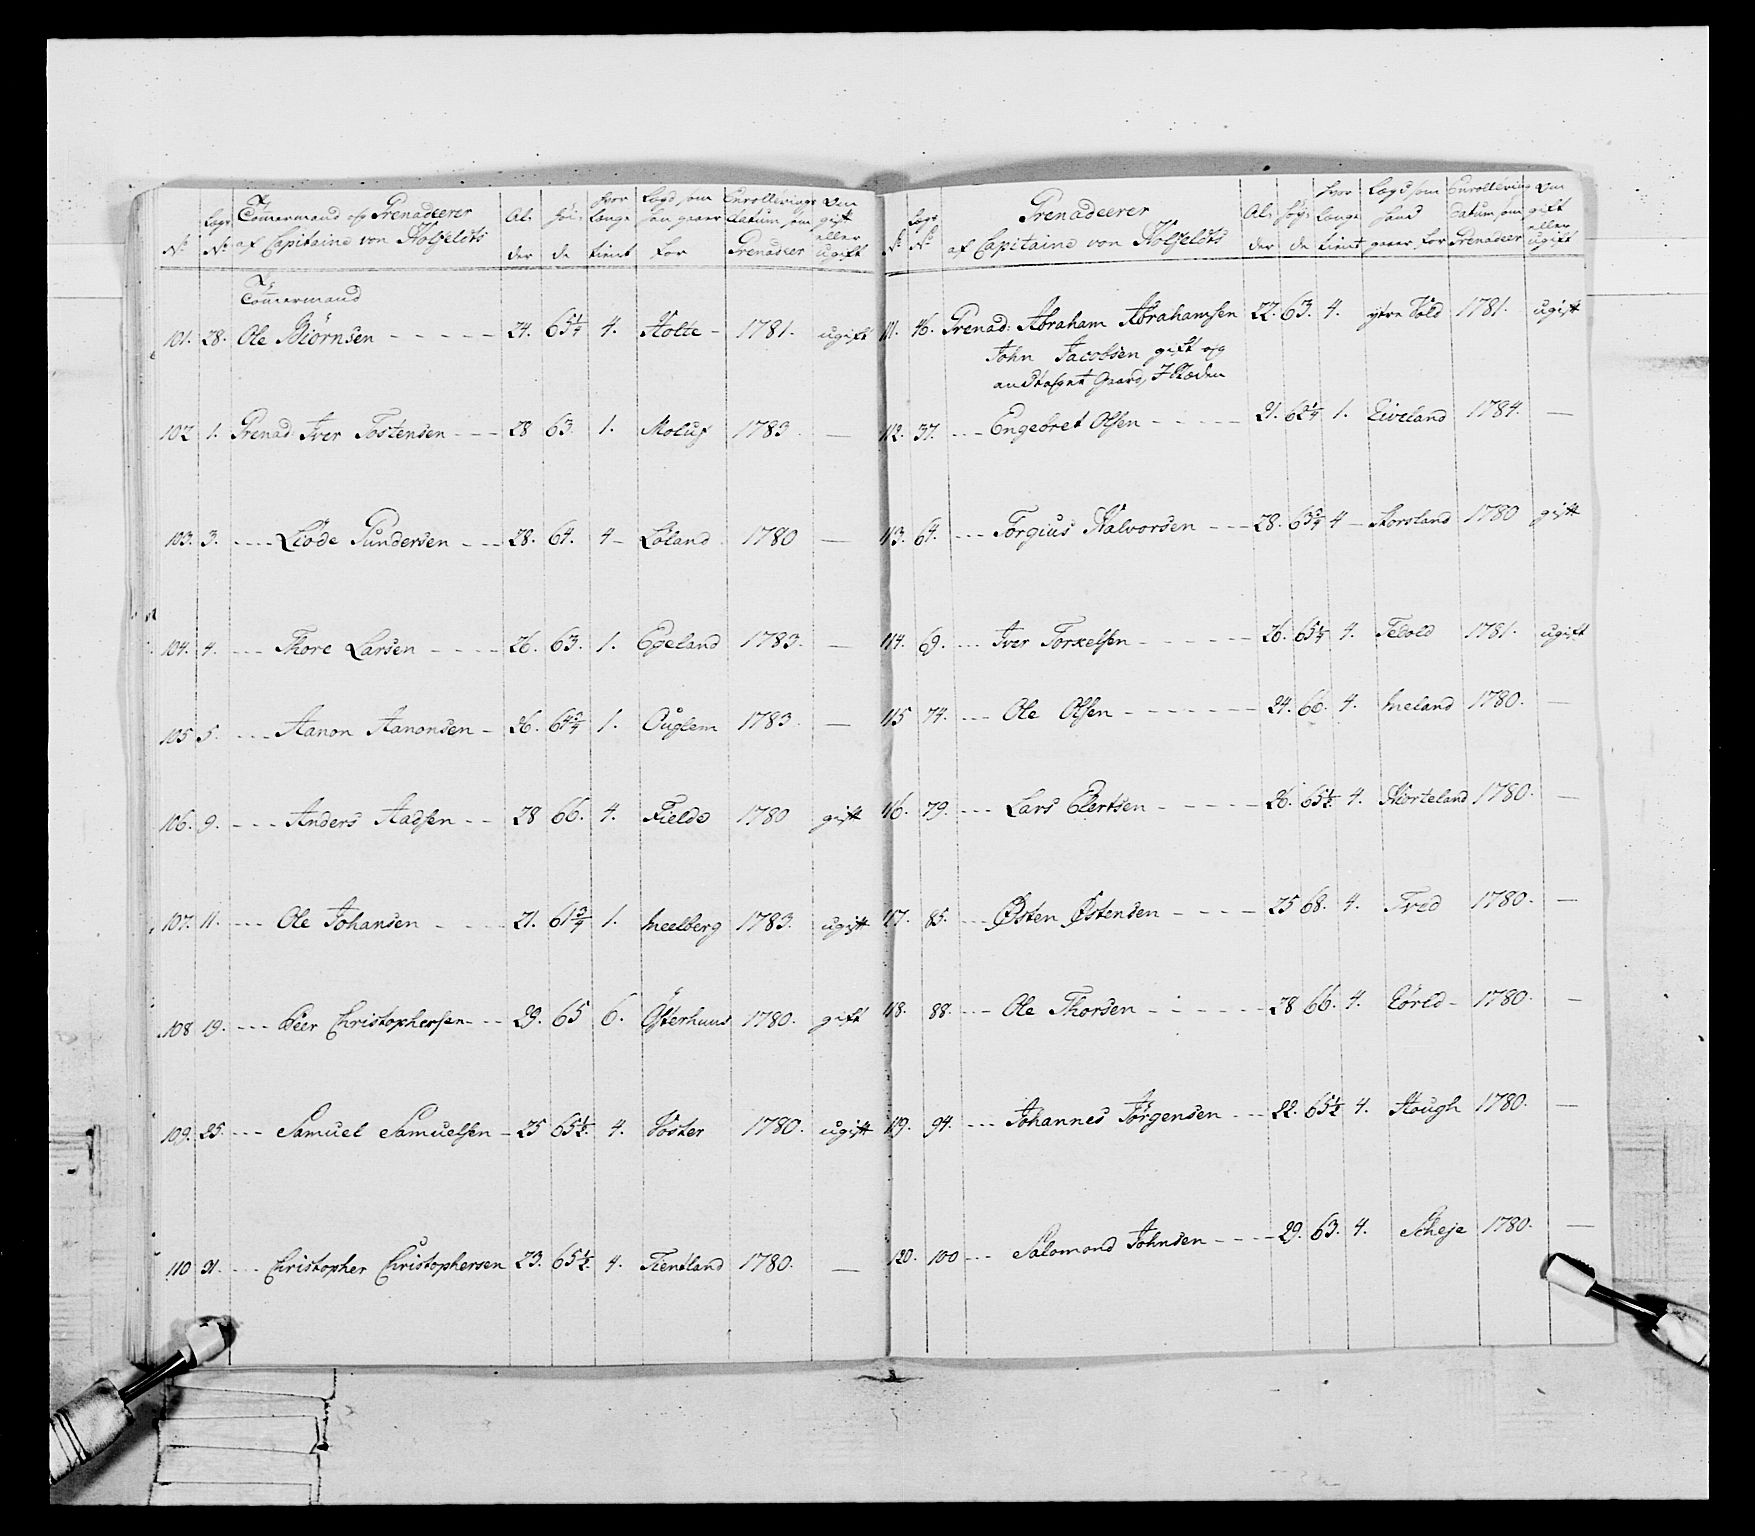 Commermand og Grenadeerer
af Capitaine von Holfeldts
No
Lægs No
Al-der
Høi-de
hvor lange tient
Lægd som han gaaer for
Enrollerings datum som Grenadeer
Om gift eller ugift
Commermand
101. 28. Ole Biörnsen 24. 65 1/4 4. Holte 1781. ugift
102 1. Grenad: Iver Tostensen 28 63. 1. 1783 —
103. 3. Gundersen 28. 64. 4 Løland 1780 —
104. 4. Thore Larsen 26. 63. 1. Egeland 1783. —
105 5. Aanon Aanonsen 26. 64 3/4 1. Ouglem 1783. —
106. 9. Anders Aadsen 28 66. 4. Fielde 1780 gift
107. 11. Ole Johansen 21. 61 3/4 1. Meelberg 1783. ugift
108 19. Peer Christophersen 29. 65 6. Østerhuus 1780. gift
109. 25. Samuel Samuelsen 25 65 1/2. 4. 1780. ugift
110 31. Christopher Christophersen 23. 65 1/2. 4. Fientland 1780. —
Grenadeerer
af Capitaine von Holfeldts
No
Lægs No
Al-der
Høy-de
hvor lange tient
Lægd som hand gaaer for
Enrollerings datum som Grenadeer
Om gift eller ugift
111. 46. Grenad: Abraham Abrahamsen 22. 63. 4. ytre 1781. ugift
John Jacobsen gift og
Gaard,
112. 37. Engebret Olsen 21. 62 1/4 1. Eiveland 1784. —
113. 64. Torgius Halvorsen 28. 63 3/4 4 Storsland 1780 gift
114. 69. Iver Torkelsen 26. 65 1/4 4. 1781. ugift
115 74. Ole Olsen 24. 66. 4. Meland 1780. —
116. 79. Lars Elertsen 26. 65 1/2 4. 1780. —
117. 85. Østen Østensen 25 68. 4. Tved 1780. —
118. 88. Ole Thorsen 28 66. 4. 1780. —
119. 94. Johannes Jørgensen 22. 65 1/2 4. Hough 1780. —
120. 100 Salomond Johnsen 29. 63. 4. Scheje 1780. —